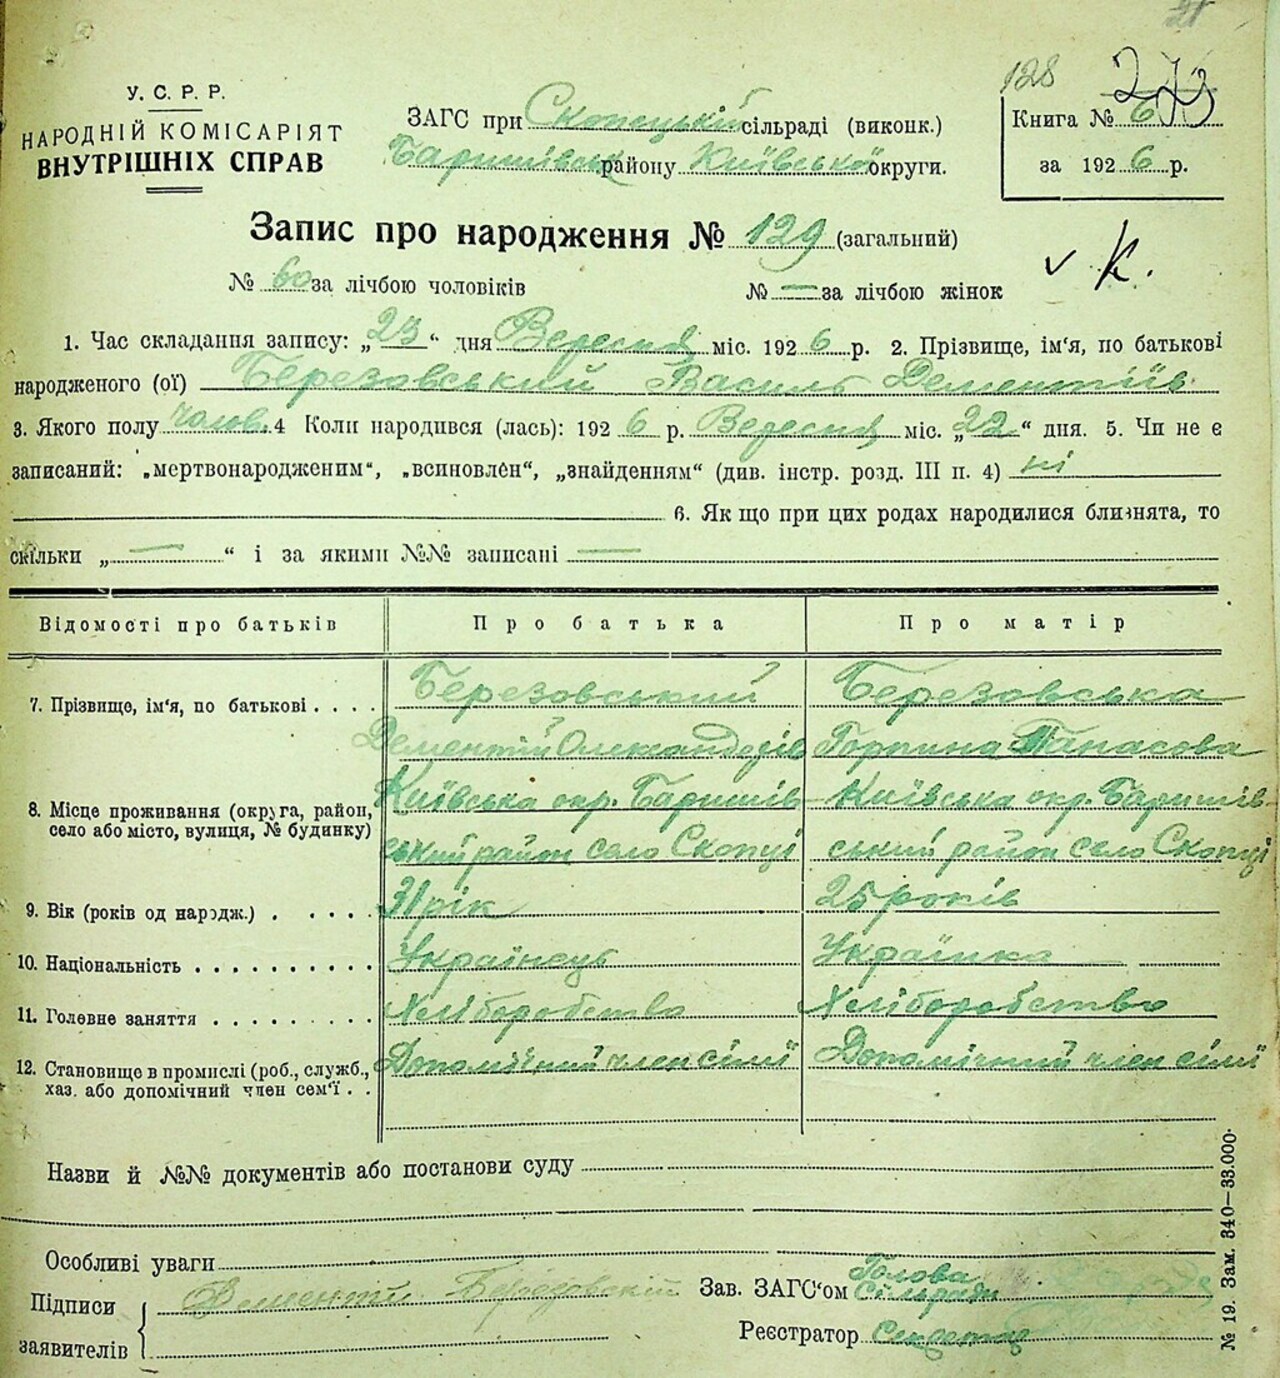 128 273
У. С. Р. Р.
НАРОДНІЙ КОМІСАРІЯТ
ВНУТРІШНІХ СПРАВ
ЗАГС при Скопецькій сільраді (виконк.)
Баришівськ району Київської округи.
Книга № 6
за 1926 р.
Запис про народження № 129 (загальний)
№ 60 за лічбою чоловіків № — за лічбою жінок
v К.
1. Час складання запису: „23“ дня Вересня міс. 1926 р. 2. Прізвище, ім'я, по батькові
народженого (ої) Березовський Василь Дементіїв
3. Якого полу чолов. 4 Коли народився (лась): 1926 р. Вересня міс. „22“ дня. 5. Чи не є
записаний: „мертвонародженим“, „всиновлен“, „знайденням“ (див. інстр. розд. III п. 4) ні
6. Як що при цих родах народилися близнята, то
скільки „—“ і за якими №№ записані —
Відомості про батьків Про батька Про матір
7. Прізвище, ім'я, по батькові . . . . Березовський Березовська
Дементій Олександрів Горпина Панасова
8. Місце проживання (округа, район, село або місто, вулиця, № будинку) Київська окр. Баришів- Київська окр. Баришів-
ський район село Скопці ський район село Скопці
9. Вік (років од народж.) . . . . . 31 рік 25 років
10. Національність . . . . . . . . . . Українець Українка
11. Головне заняття . . . . . . . . . Хліборобство Хліборобство
12. Становище в промислі (роб., служб., хаз. або допомічний член сем'ї . . Допомічний член сімї Допомічний член сімї
Назви й №№ документів або постанови суду
Особливі уваги
Підписи заявителів Дементій Березовскій
Зав. ЗАГС'ом Голова Сільради
Реєстратор Секретар
№ 19. Зам. 340—33.000.